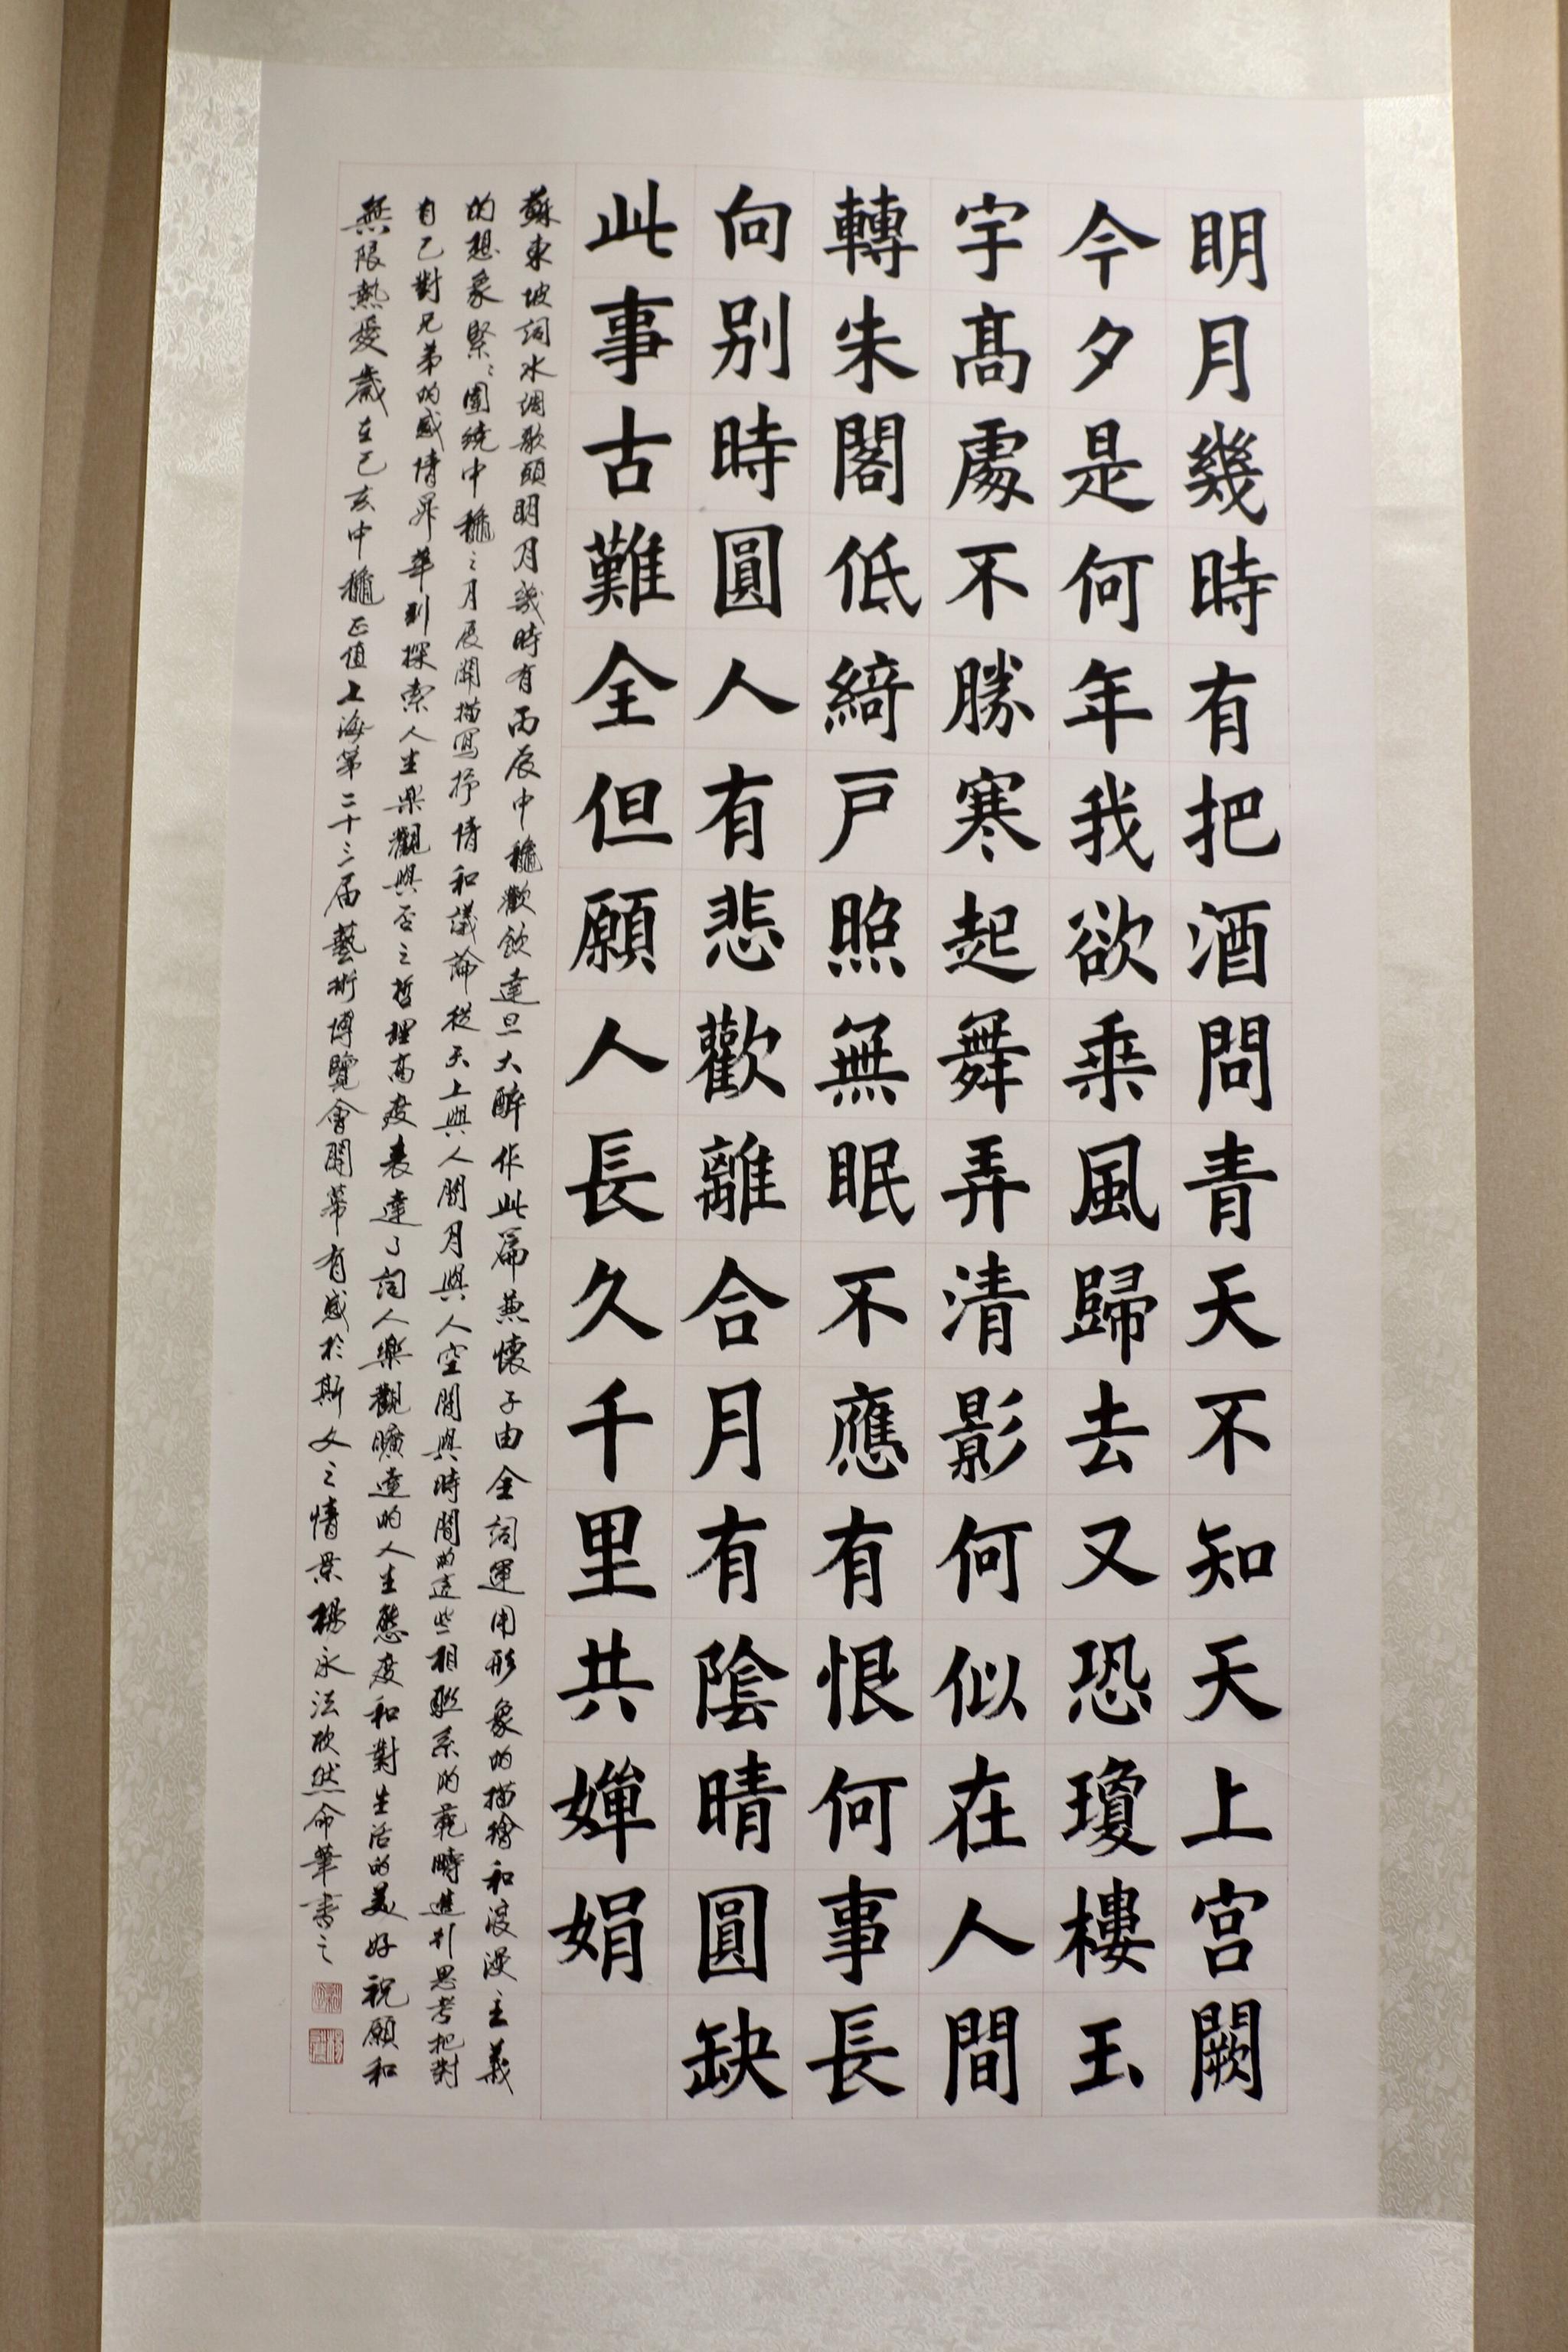 明月幾時有把酒問青天不知天上宮闕
今夕是何年我欲乘風歸去又恐瓊樓玉
宇髙處不勝寒起舞弄清影何似在人間
轉朱閣低綺戸照無眠不應有恨何事長
向别時圓人有悲歡離合月有陰晴圓缺
此事古難全但願人長久千里共嬋娟
蘇東坡詞水調歌頭明月幾時有丙辰中龝歡飲達旦大醉作此篇兼懷子由全詞運用形象的描繪和浪漫主義
的想象緊緊圍繞中龝之月展開描寫抒情和議論從天上與人間月與人空間與時間的這些相聯系的範疇進行思考把對
自己對兄弟的感情昇華到探索人生樂觀與否之哲理高度表達了詞人樂觀曠達的人生態度和對生活的美好祝願和
無限熱愛歲在己亥中龝正值上海第二十三届藝術博覽會開幕有感於斯文之情景楊永法欣然命筆書之